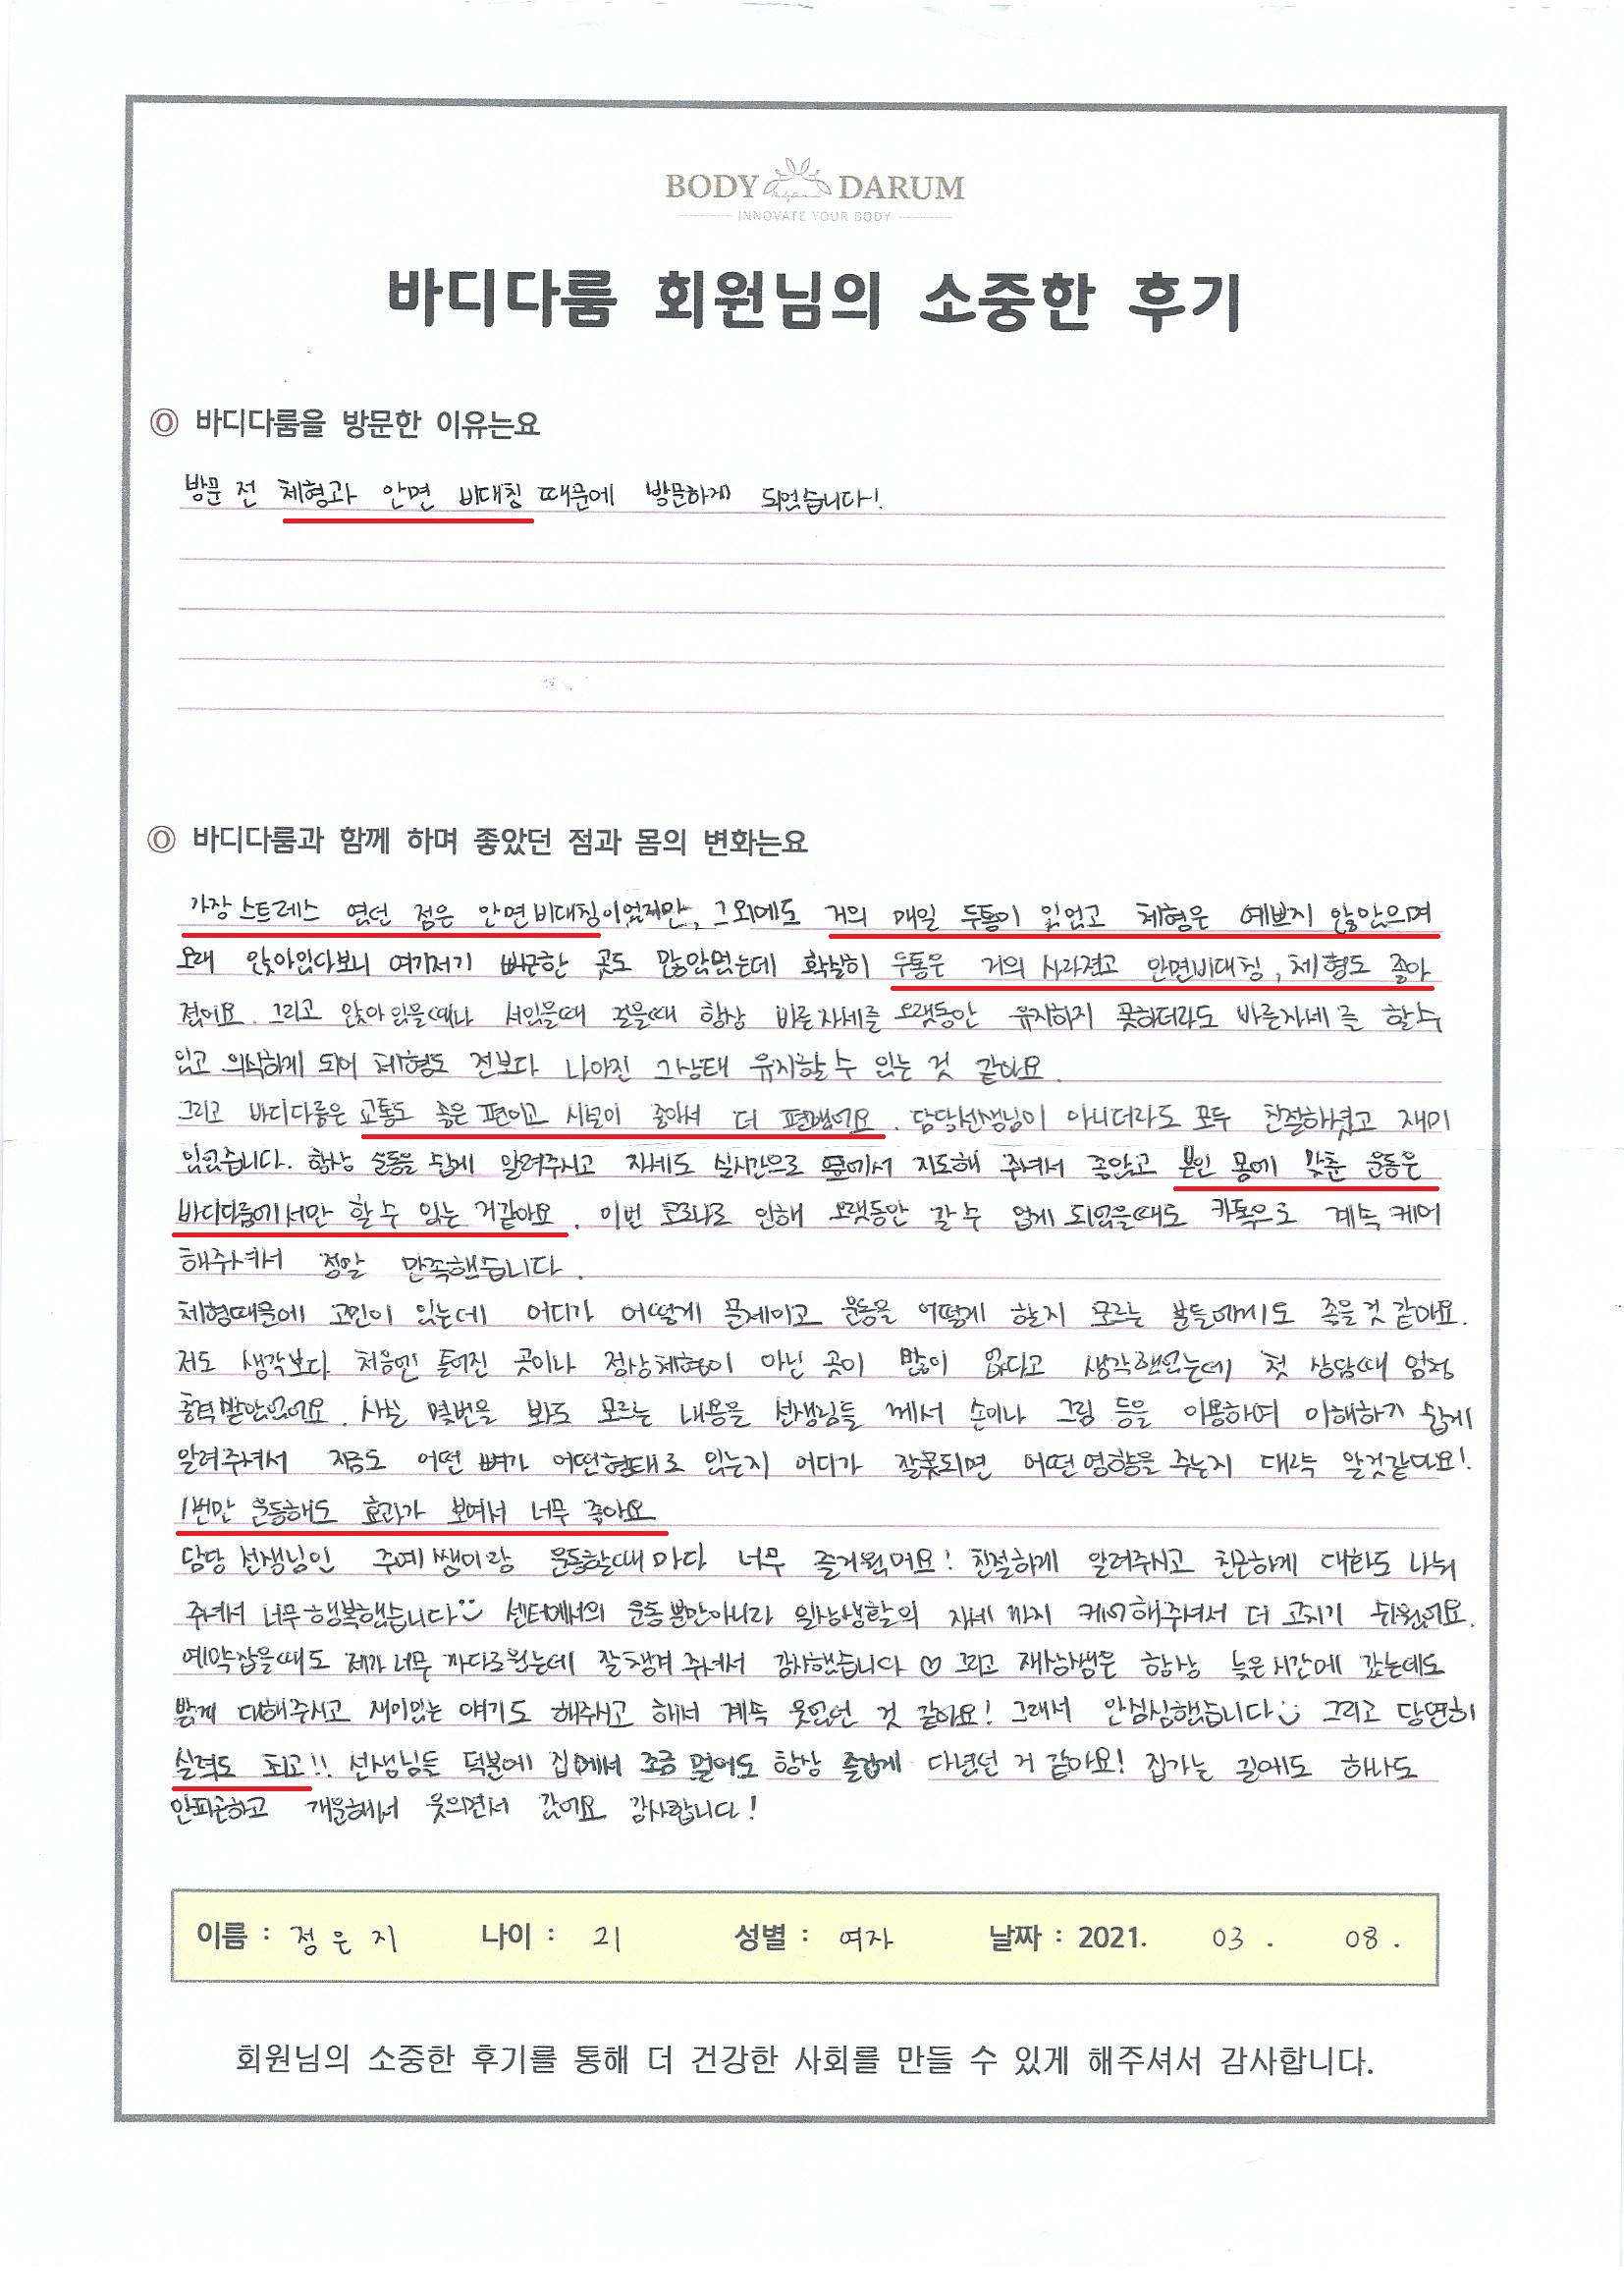 BODY DARUM
INNOVATE YOUR BODY
바디다룸 회원님의 소중한 후기
바디다룸을 방문한 이유는요
방문 전 체형과 안면 비대칭 때문에 방문하게 되었습니다!
바디다룸과 함께 하며 좋았던 점과 몸의 변화는요
가장 스트레스 였던 점은 안면비대칭이었지만, 그외에도 거의 매일 두통이 있었고 체형은 예쁘지 않았으며
오래 앉아있다보니 여기저기 뻐근한 곳도 많았었는데 확실히 두통은 거의 사라졌고 안면비대칭, 체형도 좋아
졌어요. 그리고 앉아 있을때나 서있을때 걸을때 항상 바른자세를 오랫동안 유지하지 못하더라도 바른자세를 할수
있고 의식하게 되어 체형도 전보다 나아진 그상태 유지할 수 있는 것 같아요.
그리고 바디다룸은 교통도 좋은 편이고 시설이 좋아서 더 편했어요. 담당선생님이 아니더라도 모두 친절하셨고 재미
있었습니다. 항상 운동을 쉽게 알려주시고 자세도 실시간으로 옆에서 지도해 주셔서 좋았고 본인 몸에 맞춘 운동은
바디다룸에서만 할 수 있는 거같아요. 이번 코로나로 인해 오랫동안 갈 수 없게 되었을때도 카톡으로 계속 케어
해주셔서 정말 만족했습니다.
체형때문에 고민이 있는데 어디가 어떻게 문제이고 운동을 어떻게 할지 모르는 분들에게도 좋을것 같아요.
저도 생각보다 처음엔 틀어진 곳이나 정상체형이 아닌 곳이 많이 없다고 생각했었는데 첫 상담때 엄청
충격받았었어요. 사실 몇번을 봐도 모르는 내용을 선생님들 께서 손이나 그림 등을 이용하여 이해하기 쉽게
알려주셔서 지금도 어떤 뼈가 어떤형태로 있는지 어디가 잘못되면 어떤영향을 주는지 대략 알것같아요!
1번만 운동해도 효과가 보여서 너무 좋아요
담당 선생님인 주예쌤이랑 운동할때마다 너무 즐거웠어요! 친절하게 알려주시고 친근하게 대화도 나눠
주셔서 너무행복했습니다 센터에서의 운동뿐만아니라 일상생활의 자세 까지 케어해주셔서 더 고치기 쉬웠어요.
예약잡을때도 제가 너무 까다로웠는데 잘챙겨 주셔서 감사했습니다 ♡ 그리고 재상쌤은 항상 늦은시간에 갔는데도
밝게 대해주시고 재미있는 얘기도 해주시고 해서 계속 웃었던 것 같아요! 그래서 안심심했습니다 그리고 당연히
실력도 최고!! 선생님들 덕분에 집에서 조금 멀어도 항상 즐겁게 다녔던 거 같아요! 집가는 길에도 하나도
안피곤하고 개운해서 웃으면서 갔어요 감사합니다!
이름 : 정은지 나이 : 21 성별 : 여자 날짜 : 2021. 03. 08.
회원님의 소중한 후기를 통해 더 건강한 사회를 만들 수 있게 해주셔서 감사합니다.